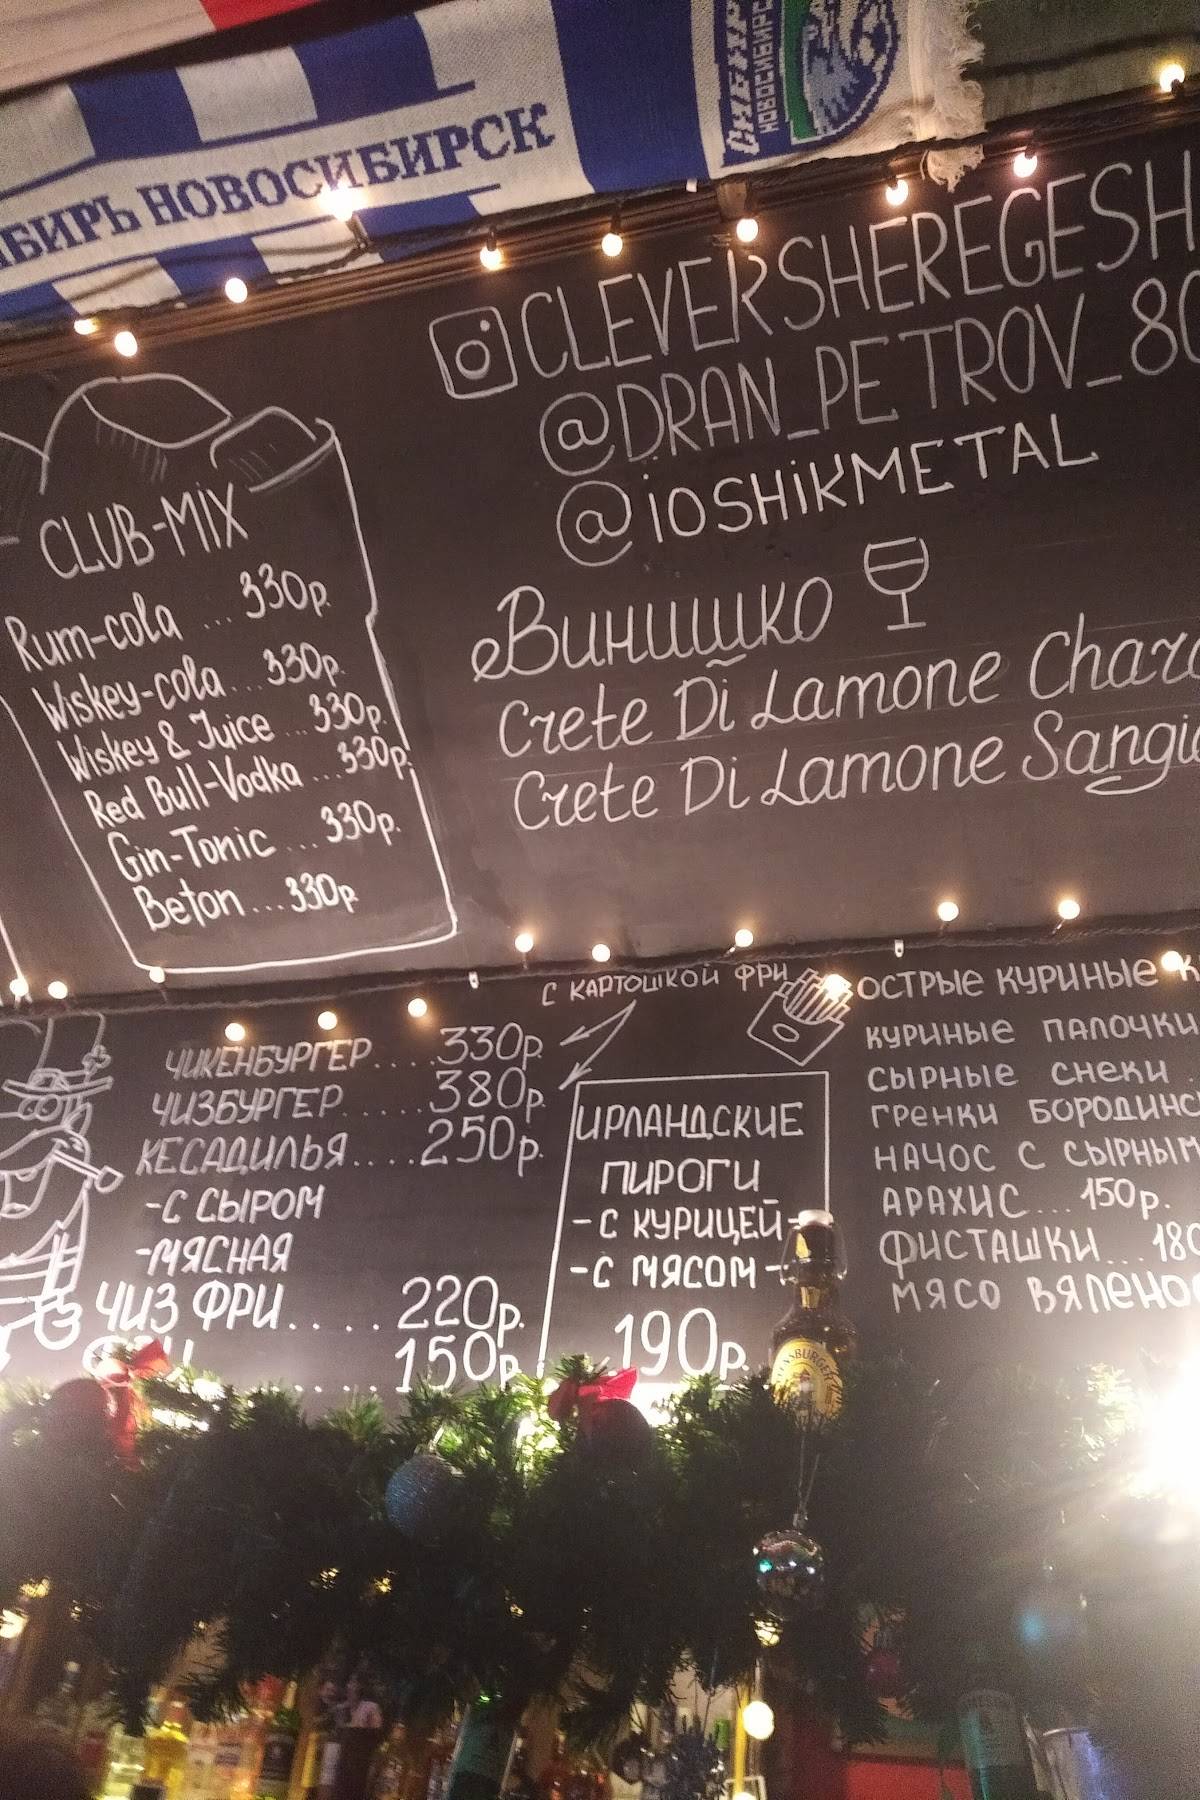 НОВОСИБИРСК
СИБИРЬ
НОВОСИБИРСК
CLEVERSHEREGESH
@DRAN_PETROV_80
@IOSHIKMETAL
CLUB-MIX
Rum-cola ... 330р.
Wiskey-cola... 330р.
Wiskey & Juice ... 330р.
Red Bull-Vodka ... 330р.
Gin-Tonic ... 330р.
Beton ... 330р.
Винишко
Crete Di Lamone
Crete Di Lamone
С КАРТОШКОЙ ФРИ
ЧИКЕНБУРГЕР....330р.
ЧИЗБУРГЕР.....380р.
КЕСАДИЛЬЯ....250р.
-С СЫРОМ
-МЯСНАЯ
ЧИЗ ФРИ.... 220р.
150р.
ИРЛАНДСКИЕ
ПИРОГИ
-С КУРИЦЕЙ-
-С МЯСОМ-
190р.
ОСТРЫЕ КУРИНЫЕ
КУРИНЫЕ ПАЛОЧКИ
СЫРНЫЕ СНЕКИ
ГРЕНКИ
НАЧОС С СЫРНЫМ
АРАХИС... 150р.
ФИСТАШКИ...180
МЯСО